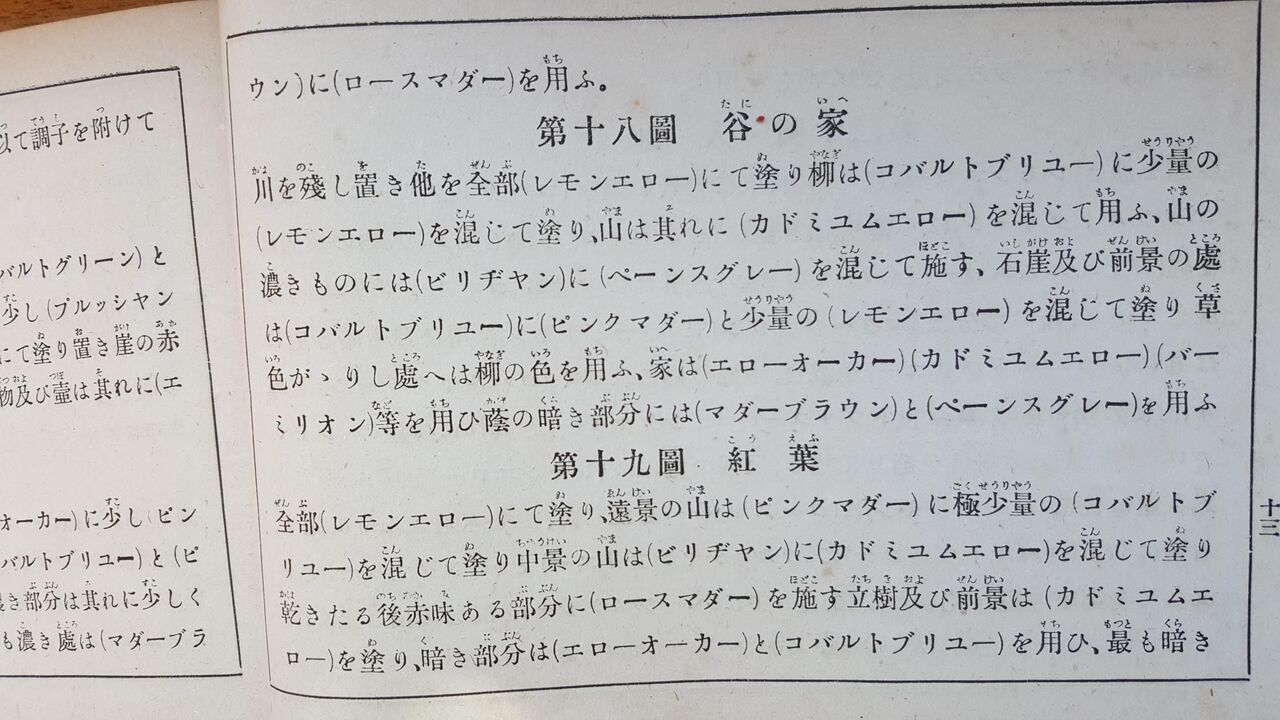 以て調子を附けて
バルトグリーン)と
少し(プルッシヤン
にて塗り置き崖の赤
物及び壷は其れに(エ
オーカー)に少し(ピン
バルトブリユー)と(ピ
き部分は其れに少しく
も濃き處は(マダーブラ
ウン)に(ロースマダー)を用ふ。
第十八圖 谷の家
川を殘し置き他を全部(レモンエロー)にて塗り柳は(コバルトブリユー)に少量の
(レモンエロー)を混じて塗り、山は其れに(カドミユムエロー)を混じて用ふ、山の
濃きものには(ビリヂヤン)に(ペーンスグレー)を混じて施す、石崖及び前景の處
は(コバルトブリユー)に(ピンクマダー)と少量の(レモンエロー)を混じて塗り草
色がゝりし處へは柳の色を用ふ、家は(エローオーカー)(カドミユムエロー)(バー
ミリオン)等を用ひ蔭の暗き部分には(マダーブラウン)と(ペーンスグレー)を用ふ
第十九圖 紅葉
全部(レモンエロー)にて塗り、遠景の山は(ピンクマダー)に極少量の(コバルトブ
リユー)を混じて塗り中景の山は(ビリヂヤン)に(カドミユムエロー)を混じて塗り
乾きたる後赤味ある部分に(ロースマダー)を施す立樹及び前景は(カドミユムエ
ロー)を塗り、暗き部分は(エローオーカー)と(コバルトブリユー)を用ひ、最も暗き
十三